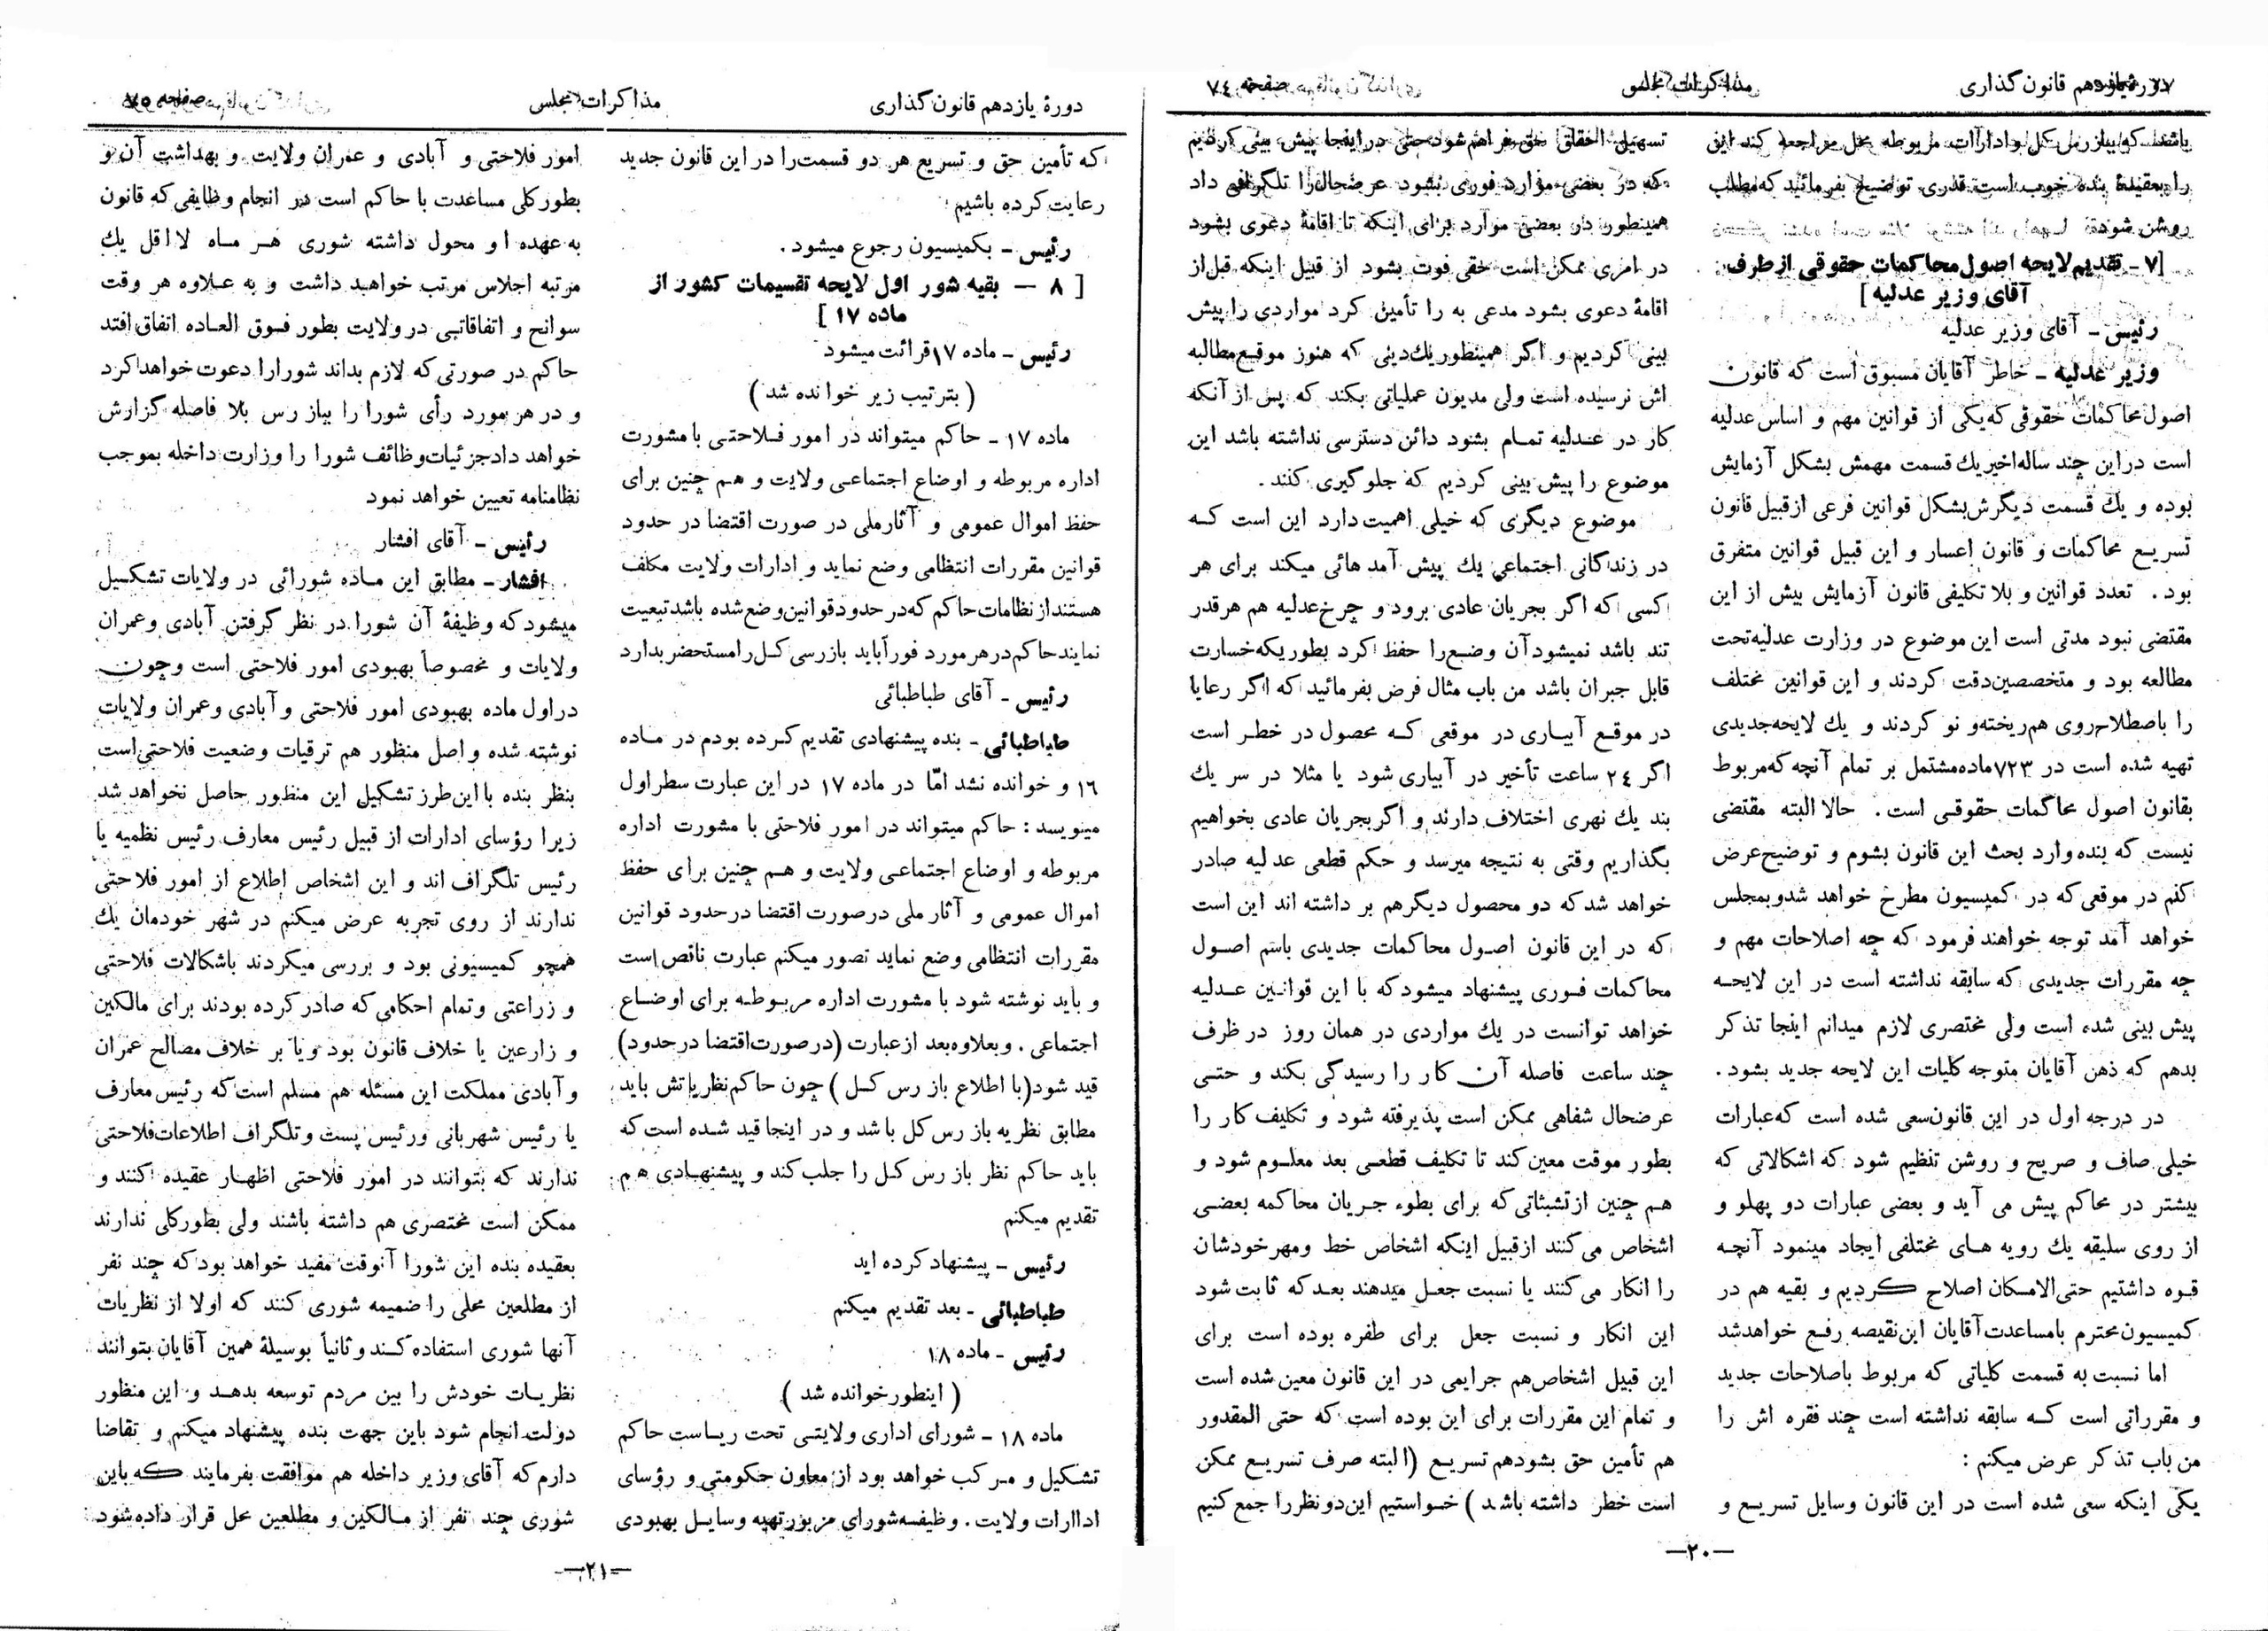 دورهٔ یازدهم قانون گذاری
مذاکرات مجلس
صفحه ۷۴
باشند که بیازرس کل و ادارات مربوطه محل مراجعه کند این
را بعقیدهٔ بنده خوب است قدری توضیح بفرمائید که مطلب
روشن شود
[۷ – تقدیم لایحه اصول محاکمات حقوقی از طرف
آقای وزیر عدلیه]
رئیس – آقای وزیر عدلیه
وزیر عدلیه – خاطر آقایان مسبوق است که قانون
اصول محاکمات حقوقی که یکی از قوانین مهم و اساس عدلیه
است در این چند ساله اخیر یك قسمت مهمش بشکل آزمایش
بوده و یك قسمت دیگرش بشکل قوانین فرعی از قبیل قانون
تسریع محاکمات و قانون اعسار و این قبیل قوانین متفرق
بود . تعدد قوانین و بلا تکلیفی قانون آزمایش بیش از این
مقتضی نبود مدتی است این موضوع در وزارت عدلیه تحت
مطالعه بود و متخصصین دقت کردند و این قوانین مختلف
را باصطلاح روی هم ریخته و نو کردند و یك لایحه جدیدی
تهیه شده است در ۷۲۳ ماده مشتمل بر تمام آنچه که مربوط
بقانون اصول محاکمات حقوقی است . حالا البته مقتضی
نیست که بنده وارد بحث این قانون بشوم و توضیح عرض
کنم در موقعی که در کمیسیون مطرح خواهد شد و بمجلس
خواهد آمد توجه خواهند فرمود که چه اصلاحات مهم و
چه مقررات جدیدی که سابقه نداشته است در این لایحه
پیش بینی شده است ولی مختصری لازم میدانم اینجا تذکر
بدهم که ذهن آقایان متوجه کلیات این لایحه جدید بشود .
در درجه اول در این قانون سعی شده است که عبارات
خیلی صاف و صریح و روشن تنظیم شود که اشکالاتی که
بیشتر در محاکم پیش می آید و بعضی عبارات دو پهلو و
از روی سلیقه یك رویه های مختلفی ایجاد مینمود آنچه
قوه داشتیم حتی الامکان اصلاح کردیم و بقیه هم در
کمیسیون محترم با مساعدت آقایان این نقیصه رفع خواهد شد
اما نسبت به قسمت کلیاتی که مربوط باصلاحات جدید
و مقرراتی است که سابقه نداشته است چند فقره اش را
من باب تذکر عرض میکنم :
یکی اینکه سعی شده است در این قانون وسایل تسریع و
تسهیل احقاق حق فراهم شود حتی در اینجا پیش بینی کردیم
که در بعضی موارد فوری بشود عرضحال را تلگرافی داد
همینطور در بعضی موارد برای اینکه تا اقامهٔ دعوی بشود
در امری ممکن است حقی فوت بشود از قبیل اینکه قبل از
اقامهٔ دعوی بشود مدعی به را تأمین کرد مواردی را پیش
بینی کردیم و اگر همینطور یك دینی که هنوز موقع مطالبه
اش نرسیده است ولی مدیون عملیاتی بکند که پس از آنکه
کار در عدلیه تمام بشود دائن دسترسی نداشته باشد این
موضوع را پیش بینی کردیم که جلوگیری کنند .
موضوع دیگری که خیلی اهمیت دارد این است که
در زندگانی اجتماعی یك پیش آمد هائی میکند برای هر
کسی که اگر بجریان عادی برود و چرخ عدلیه هم هر قدر
تند باشد نمیشود آن وضع را حفظ کرد بطوریکه خسارت
قابل جبران باشد من باب مثال فرض بفرمائید که اگر رعایا
در موقع آبیاری در موقعی که محصول در خطر است
اگر ۲۴ ساعت تأخیر در آبیاری شود یا مثلا در سر یك
بند یك نهری اختلاف دارند و اگر بجریان عادی بخواهیم
بگذاریم وقتی به نتیجه میرسد و حکم قطعی عدلیه صادر
خواهد شد که دو محصول دیگر هم بر داشته اند این است
که در این قانون اصول محاکمات جدیدی باسم اصول
محاکمات فوری پیشنهاد میشود که با این قوانین عدلیه
خواهد توانست در یك مواردی در همان روز در ظرف
چند ساعت فاصله آن کار را رسیدگی بکند و حتی
عرضحال شفاهی ممکن است پذیرفته شود و تکلیف کار را
بطور موقت معین کند تا تکلیف قطعی بعد معلوم شود و
هم چنین از تشبثاتی که برای بطوء جریان محاکمه بعضی
اشخاص می کنند از قبیل اینکه اشخاص خط و مهر خودشان
را انکار می کنند یا نسبت جعل میدهند بعد که ثابت شود
این انکار و نسبت جعل برای طفره بوده است برای
این قبیل اشخاص هم جرایمی در این قانون معین شده است
و تمام این مقررات برای این بوده است که حتی المقدور
هم تأمین حق بشود هم تسریع (البته صرف تسریع ممکن
است خطر داشته باشد ) خواستیم این دو نظر را جمع کنیم
—۲۰—
دورهٔ یازدهم قانون گذاری
مذاکرات مجلس
صفحه ۷۵
که تأمین حق و تسریع هر دو قسمت را در این قانون جدید
رعایت کرده باشیم
رئیس – بکمیسیون رجوع میشود .
[ ۸ – بقیه شور اول لایحه تقسیمات کشور از
ماده ۱۷ ]
رئیس – ماده ۱۷ قرائت میشود
( بترتیب زیر خوانده شد )
ماده ۱۷ – حاکم میتواند در امور فلاحتی با مشورت
اداره مربوطه و اوضاع اجتماعی ولایت و هم چنین برای
حفظ اموال عمومی و آثار ملی در صورت اقتضا در حدود
قوانین مقررات انتظامی وضع نماید و ادارات ولایت مکلف
هستند از نظامات حاکم که در حدود قوانین وضع شده باشد تبعیت
نمایند حاکم در هر مورد فوراً باید بازرسی کل را مستحضر بدارد
رئیس – آقای طباطبائی
طباطبائی – بنده پیشنهادی تقدیم کرده بودم در ماده
۱۶ و خوانده نشد امّا در ماده ۱۷ در این عبارت سطر اول
مینویسد : حاکم میتواند در امور فلاحتی با مشورت اداره
مربوطه و اوضاع اجتماعی ولایت و هم چنین برای حفظ
اموال عمومی و آثار ملی در صورت اقتضا در حدود قوانین
مقررات انتظامی وضع نماید تصور میکنم عبارت ناقص است
و باید نوشته شود با مشورت اداره مربوطه برای اوضاع
اجتماعی . و بعلاوه بعد از عبارت (در صورت اقتضا در حدود)
قید شود (با اطلاع باز رس کل ) چون حاکم نظریاتش باید
مطابق نظریه باز رس کل باشد و در اینجا قید شده است که
باید حاکم نظر باز رس کل را جلب کند و پیشنهادی هم
تقدیم میکنم
رئیس – پیشنهاد کرده اید
طباطبائی – بعد تقدیم میکنم
رئیس – ماده ۱۸
( اینطور خوانده شد )
ماده ۱۸ – شورای اداری ولایتی تحت ریاست حاکم
تشکیل و مرکب خواهد بود از معاون حکومتی و رؤسای
ادارات ولایت . وظیفه شورای مزبور تهیه وسایل بهبودی
امور فلاحتی و آبادی و عمران ولایت و بهداشت آن و
بطور کلی مساعدت با حاکم است در انجام وظایفی که قانون
به عهده او محول داشته شوری هر ماه لااقل یك
مرتبه اجلاس مرتب خواهد داشت و به علاوه هر وقت
سوانح و اتفاقاتی در ولایت بطور فوق العاده اتفاق افتد
حاکم در صورتی که لازم بداند شورا را دعوت خواهد کرد
و در هر مورد رأی شورا را بباز رس بلا فاصله گزارش
خواهد داد جزئیات وظائف شورا را وزارت داخله بموجب
نظامنامه تعیین خواهد نمود
رئیس – آقای افشار
افشار – مطابق این ماده شورائی در ولایات تشکیل
میشود که وظیفهٔ آن شورا در نظر گرفتن آبادی و عمران
ولایات و مخصوصاً بهبودی امور فلاحتی است و چون
در اول ماده بهبودی امور فلاحتی و آبادی و عمران ولایات
نوشته شده و اصل منظور هم ترقیات وضعیت فلاحتی است
بنظر بنده با این طرز تشکیل این منظور حاصل نخواهد شد
زیرا رؤسای ادارات از قبیل رئیس معارف رئیس نظمیه یا
رئیس تلگراف اند و این اشخاص اطلاع از امور فلاحتی
ندارند از روی تجربه عرض میکنم در شهر خودمان یك
همچو کمیسیونی بود و بررسی میکردند باشکالات فلاحتی
و زراعتی و تمام احکامی که صادر کرده بودند برای مالکین
و زارعین یا خلاف قانون بود و یا بر خلاف مصالح عمران
و آبادی مملکت این مسئله هم مسلم است که رئیس معارف
یا رئیس شهربانی و رئیس پست و تلگراف اطلاعات فلاحتی
ندارند که بتوانند در امور فلاحتی اظهار عقیده کنند و
ممکن است مختصری هم داشته باشند ولی بطور کلی ندارند
بعقیده بنده این شورا آنوقت مفید خواهد بود که چند نفر
از مطلعین محلی را ضمیمه شوری کنند که اولا از نظریات
آنها شوری استفاده کند و ثانیاً بوسیلهٔ همین آقایان بتوانند
نظریات خودش را بین مردم توسعه بدهد و این منظور
دولت انجام شود باین جهت بنده پیشنهاد میکنم و تقاضا
دارم که آقای وزیر داخله هم موافقت بفرمایند که باین
شوری چند نفر از مالکین و مطلعین محل قرار داده شود
—۲۱—